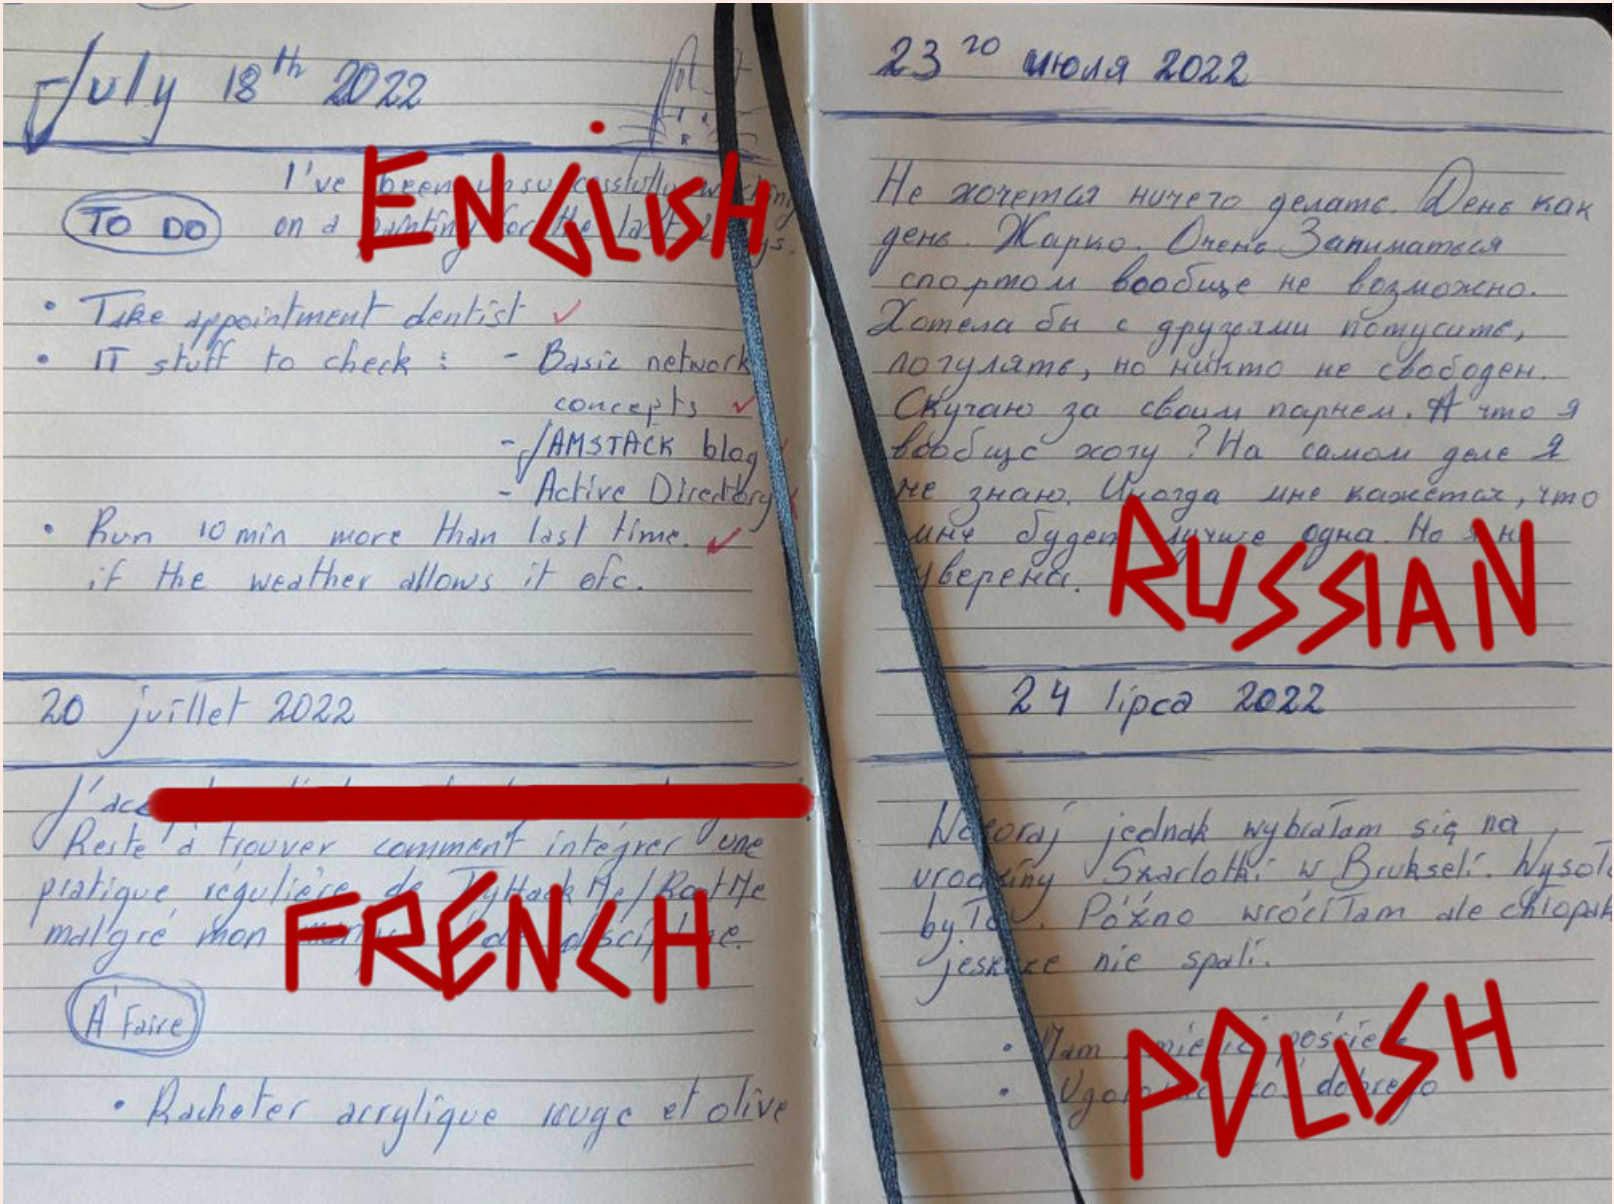 July 18th 2022
ENGLISH
I've been unsuccessfully working
TO DO
on a painting for the last days.
• Take appointment dentist ✓
• IT stuff to check : - Basic network
concepts ✓
- JAMSTACK blog
- Active Directory
• Run 10 min more than last time. ✓
if the weather allows it ofc.
20 juillet 2022
J'acc
Reste à trouver comment intégrer une
pratique régulière de TryHackMe/RootMe
malgré mon de discipline.
FRENCH
À Faire
• Racheter acrylique rouge et olive
23 го июля 2022
Не хочется ничего делать. День как
день. Жарко. Очень Заниматься
спортом вообще не возможно.
Хотела бы с друзьями потусить,
погулять, но никто не свободен.
Скучаю за своим парнем. А что я
вообще хочу? На самом деле я
не знаю. Иногда мне кажется, что
мне будет лучше одна. Но я не
уверена.
RUSSIAN
24 lipca 2022
Wczoraj jednak wybrałam się na
urodziny Szarlotki w Brukseli.
było. Późno wróciłam ale chłopak
jeszcze nie spali.
• Mam zmienić pościel
• coś dobrego
POLISH